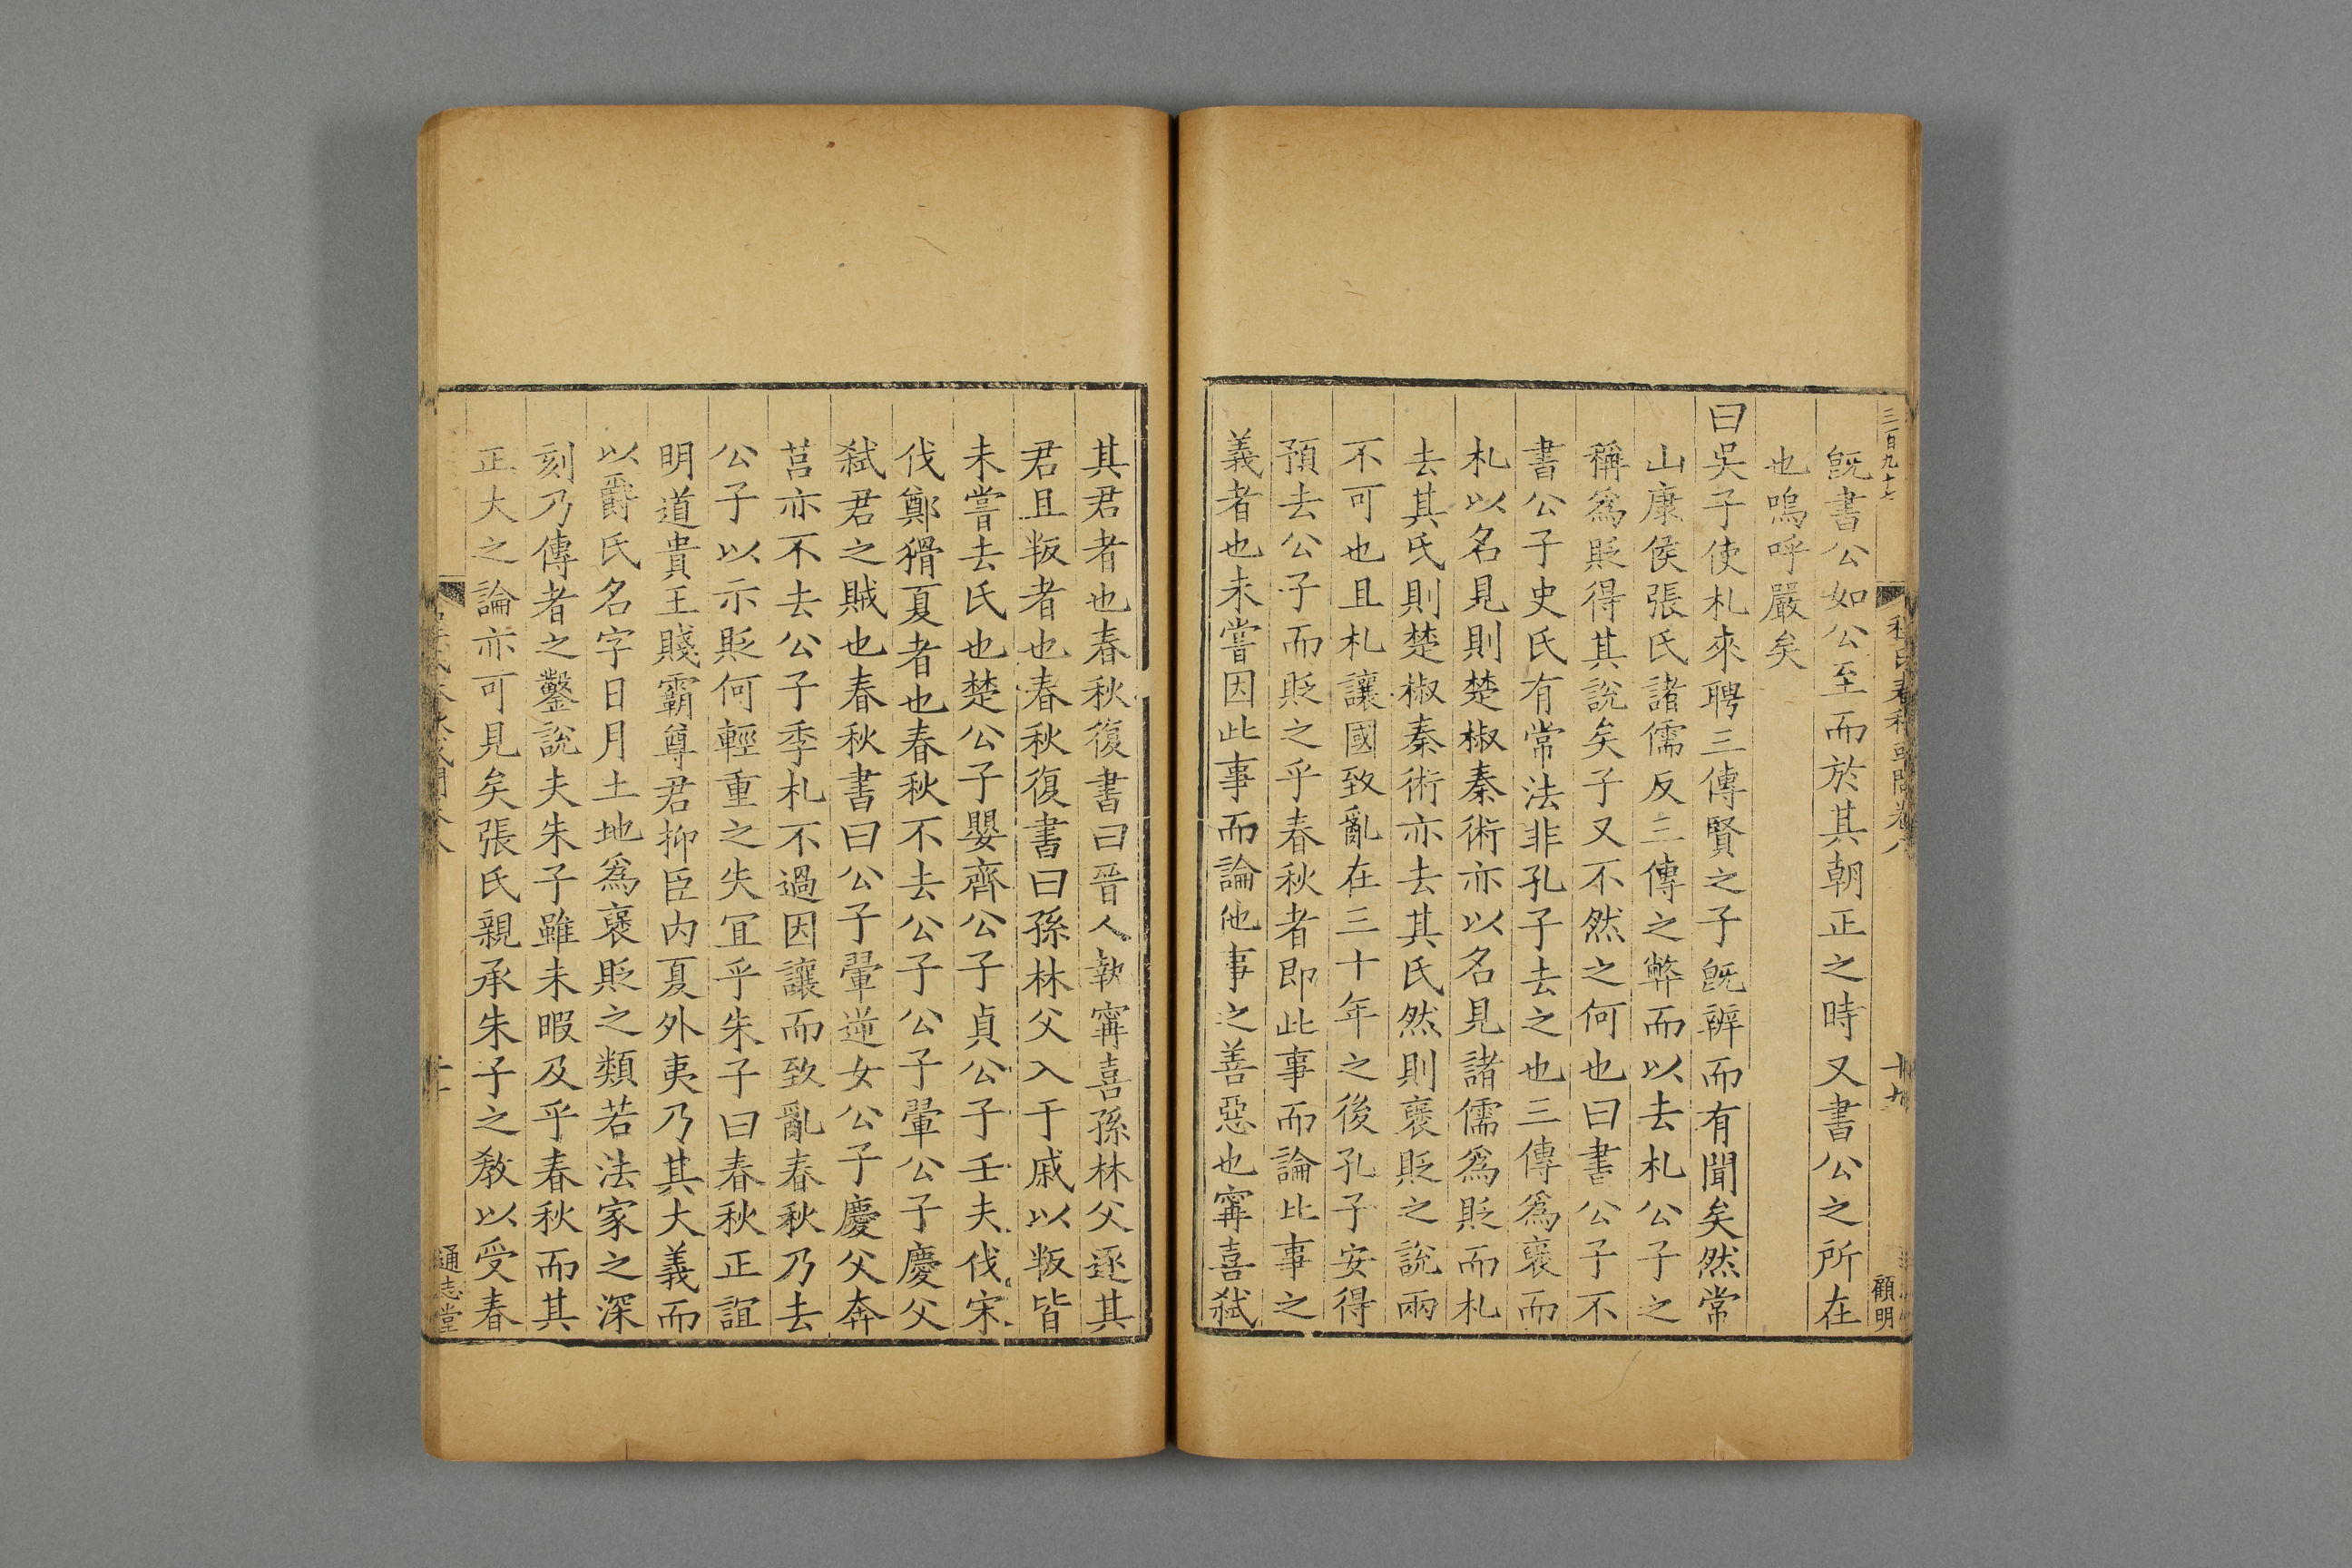 三百九十七
春秋或問卷八
十九
顧明
旣書公如公至而於其朝正之時又書公之所在
也嗚呼嚴矣
曰吳子使札來聘三傳賢之子旣辨而有聞矣然常
山康侯張氏諸儒反三傳之弊而以去札公子之
稱爲貶得其說矣子又不然之何也曰書公子不
書公子史氏有常法非孔子去之也三傳爲襃而
札以名見則楚椒秦術亦以名見諸儒爲貶而札
去其氏則楚椒秦術亦去其氏然則襃貶之說兩
不可也且札讓國致亂在三十年之後孔子安得
預去公子而貶之乎春秋者即此事而論此事之
義者也未嘗因此事而論他事之善惡也寗喜弑
其君者也春秋復書曰晉人執寗喜孫林父逐其
君且叛者也春秋復書曰孫林父入于戚以叛皆
未嘗去氏也楚公子嬰齊公子貞公子壬夫伐宋
伐鄭猾夏者也春秋不去公子公子翬公子慶父
弑君之賊也春秋書曰公子翬逆女公子慶父奔
莒亦不去公子季札不過因讓而致亂春秋乃去
公子以示貶何輕重之失宜乎朱子曰春秋正誼
明道貴王賤霸尊君抑臣内夏外夷乃其大義而
以爵氏名字日月土地爲襃貶之類若法家之深
刻乃傳者之鑿說夫朱子雖未暇及乎春秋而其
正大之論亦可見矣張氏親承朱子之敎以受春
通志堂